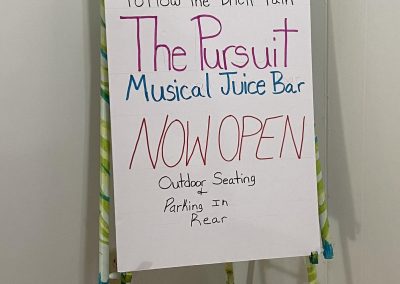 Follow The Brick Path
The Pursuit
Musical Juice Bar
NOW OPEN
Outdoor Seating
&
Parking In
Rear